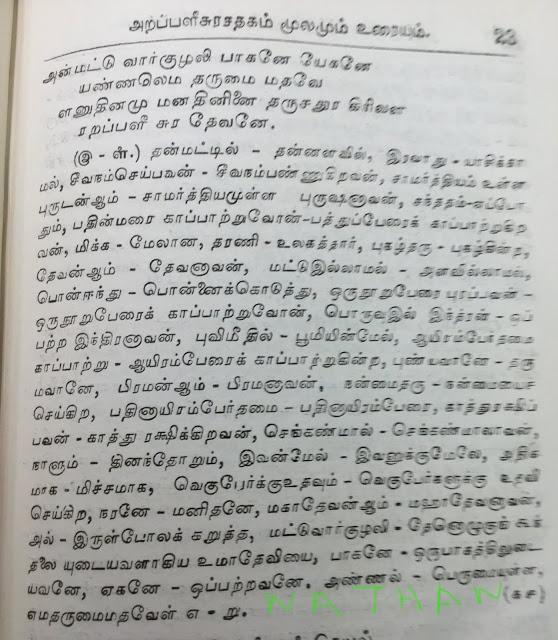 அறப்பளீசுரசதகம் மூலமும் உரையும். 23
அன்மட்டு வார்குழலி பாகனே யேகனே
யண்ணலெம தருமை மதவே
ளனுதினமு மனதினினை தருசதுர கிரிவள
ரறப்பளீ சுர தேவனே.
(இ - ள்.) தன்மட்டில் - தன்னளவில், இரவாது - யாசிக்கா
மல், சீவநம்செய்பவன் - சீவநம்பண்ணுகிறவன், சாமர்த்தியம் உள்ள
புருடன்ஆம் - சாமர்த்தியமுள்ள புருஷனாவன், சந்ததம்-எப்போ
தும், பதின்மரை காப்பாற்றுவோன்-பத்துப்பேரைக் காப்பாற்றுகிற
வன், மிக்க - மேலான, தரணி - உலகத்தார், புகழ்தரு - புகழ்கின்ற,
தேவன்ஆம் - தேவனாவன், மட்டுஇல்லாமல் - அளவில்லாமல்,
பொன்ஈந்து - பொன்னைக்கொடுத்து, ஒருநூறுபேரை புரப்பவன் -
ஒருநூறுபேரைக் காப்பாற்றுவோன், பொருவுஇல் இந்த்ரன் - ஒப்
பற்ற இந்திரனாவன், புவிமீதில் - பூமியின்மேல், ஆயிரம்பேர்தமை
காப்பாற்று - ஆயிரம்பேரைக் காப்பாற்றுகின்ற, புண்யவானே - தரு
மவானே, பிரமன்ஆம் - பிரமனாவன், நன்மைதரு - நன்மையைச்
செய்கிற, பதினாயிரம்பேர்தமை - பதினாயிரம்பேரை, காத்துரக்ஷிப்
பவன் - காத்து ரக்ஷிக்கிறவன், செங்கண்மால் - செங்கண்மாலாவன்,
நாளும் - தினந்தோறும், இவன்மேல் - இவனுக்குமேலே, அதிக
மாக - மிச்சமாக, வெகுபேர்க்குஉதவும் - வெகுபேர்களுக்கு உதவி
செய்கிற, நரனே - மனிதனே, மகாதேவன்ஆம் - மஹாதேவனாவன்,
அல் - இருள்போலக் கறுத்த, மட்டுவார்குழலி - தேனொழுகுங் கூந்
தலை யுடையவளாகிய உமாதேவியை, பாகனே - ஒருபாகத்திலுடை
யவனே, ஏகனே - ஒப்பற்றவனே. அண்ணல் - பெருமையுள்ள,
எமதருமைமதவேள் எ - று. (கச)
NATHAN